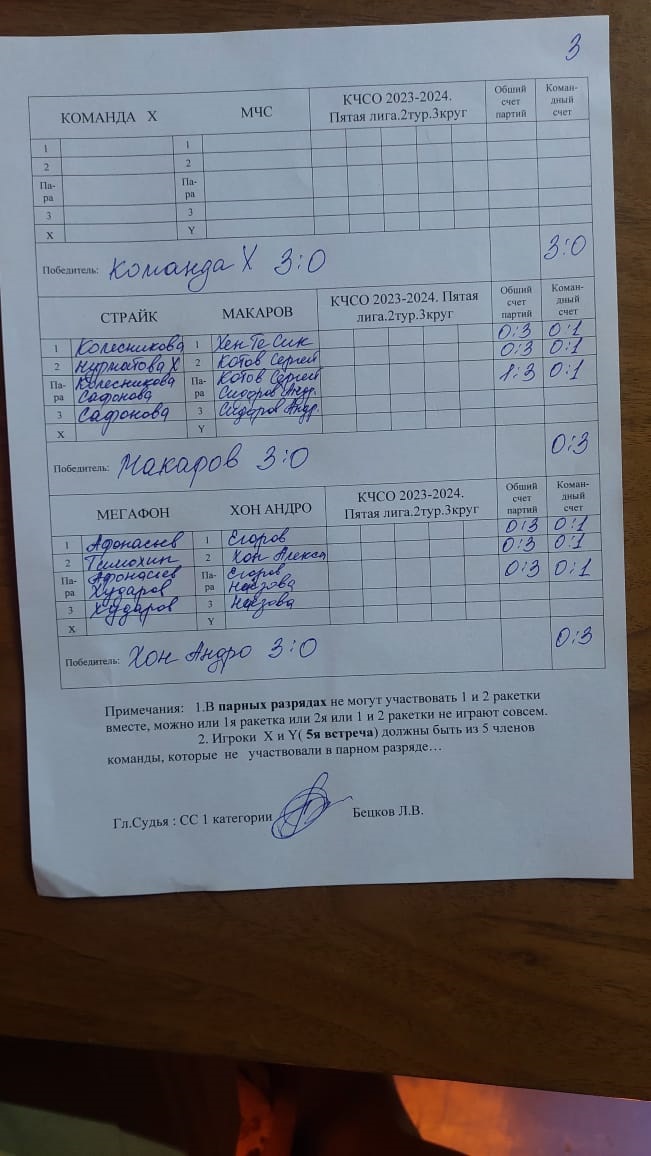 3
КОМАНДА Х МЧС КЧСО 2023-2024. Пятая лига.2тур.3круг Общий счет партий Коман-дный счет
1 1
2 2
Па-ра Па-ра
3 3
X Y
Победитель: Команда Х 3:0 3:0
СТРАЙК МАКАРОВ КЧСО 2023-2024. Пятая лига.2тур.3круг Общий счет партий Коман-дный счет
1 Колесникова 1 Хен Те Сик 0:3 0:1
2 Нурматова Х 2 Котов Сергей 0:3 0:1
Па-ра Колесникова Сафонова Па-ра Котов Сергей Сидоров Андр. 1:3 0:1
3 Сафонова 3 Сидоров Андр.
X Y
Победитель: Макаров 3:0 0:3
МЕГАФОН ХОН АНДРО КЧСО 2023-2024. Пятая лига.2тур.3круг Общий счет партий Коман-дный счет
1 Афонасьев 1 Егоров 0:3 0:1
2 Тимохин 2 Хон Алекса 0:3 0:1
Па-ра Афонасьев Хударов Па-ра Егоров 0:3 0:1
3 Хударов 3
X Y
Победитель: Хон Андро 3:0 0:3
Примечания: 1.В парных разрядах не могут участвовать 1 и 2 ракетки
вместе, можно или 1я ракетка или 2я или 1 и 2 ракетки не играют совсем.
2. Игроки X и Y( 5я встреча) должны быть из 5 членов
команды, которые не участвовали в парном разряде…
Гл.Судья : СС 1 категории Бецков Л.В.